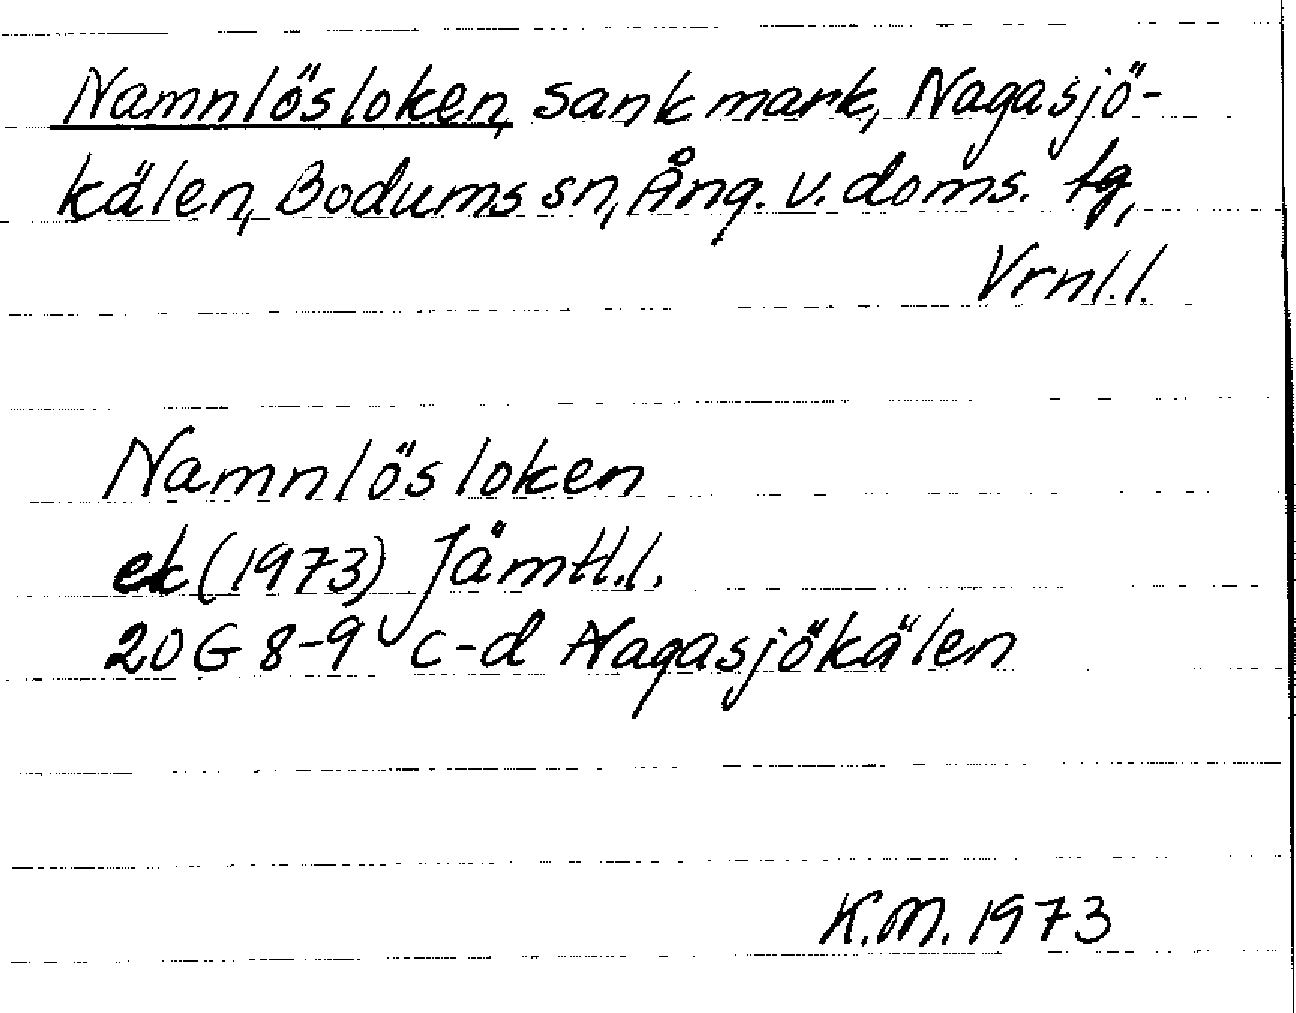 Namnlösloken, sankmark, Nagasjö-
kälen, Bodums sn, Ång. v. doms. tg,
Vrnl.l.
Namnlösloken
ek (1973) Jämtl.l.
20G 8-9 c-d Nagasjökälen
K.M. 1973